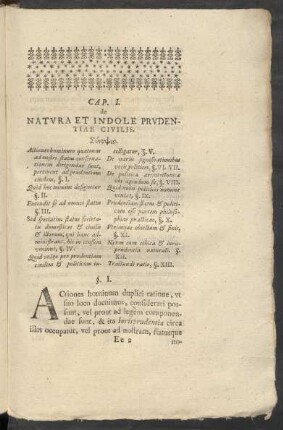 CAP. I.
de
NATVRA ET INDOLE PRVDEN-
TIAE CIVILIS.
Σύνοψις.
Actiones hominum quatenus
ad nostri status conserva-
tionem diriguntur sunt,
pertinent ad prudentiam
civilem, §. I.
Quid hoc nomine designetur
§. II.
Extendit se ad omnes status
§. III.
Sed spectatim status societa-
tis domesticae & civilis
& illorum, vel hanc ad-
ministrant, hic ac civilem
veniunt, §. IV.
Quid vulgo per prudentiam
civilem & politicam in-
telligatur, §. V.
De variis significationibus
vocis politices, §. VI. VII.
De politica architectonica
§. VIII.
Quid nobis politices nomine
veniat, §. IX.
Prudentiam civilem & politi-
cam esse partem philoso-
phiae practicae, §. X.
Proximum obiectum & finis,
§. XI.
Nexus cum ethica & iuris-
prudentia naturali, §.
XII.
Tractandi ratio, §. XIII.
§. I.
Actiones hominum duplici ratione, vt
suo loco docuimus, considerari pos-
sunt, vel prout ad legem componen-
dae sunt, & ita iurisprudentia circa
illas occupatur, vel prout ad nostrum, statumque
Ee 2
no-